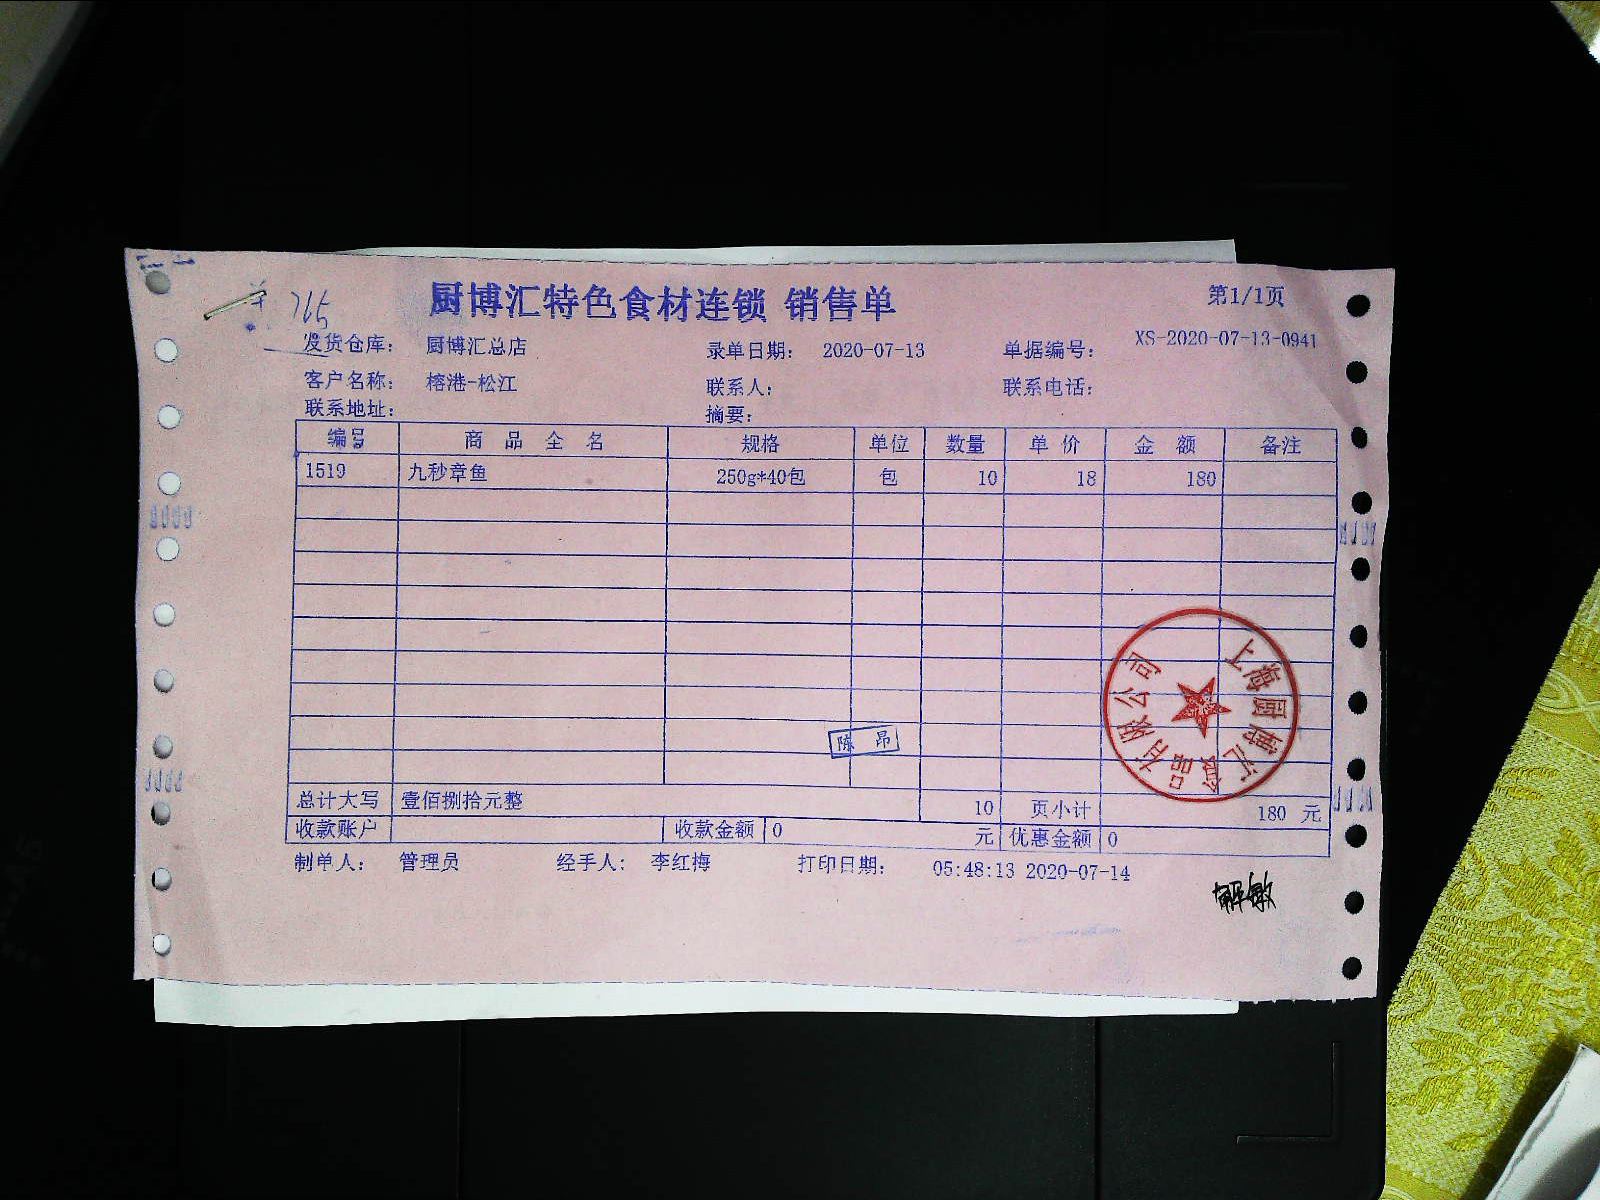 厨博汇特色食材连锁 销售单
第1/1页
765
发货仓库： 厨博汇总店 录单日期： 2020-07-13 单据编号： XS-2020-07-13-0941
客户名称： 榕港-松江 联系人： 联系电话：
联系地址： 摘要：
编号 商品全名 规格 单位 数量 单价 金额 备注
1519 九秒章鱼 250g*40包 包 10 18 180
上海厨博汇食品有限公司
陈昂
总计大写 壹佰捌拾元整 10 页小计 180 元
收款账户 收款金额 0 元 优惠金额 0
制单人： 管理员 经手人： 李红梅 打印日期： 05:48:13 2020-07-14
解敏